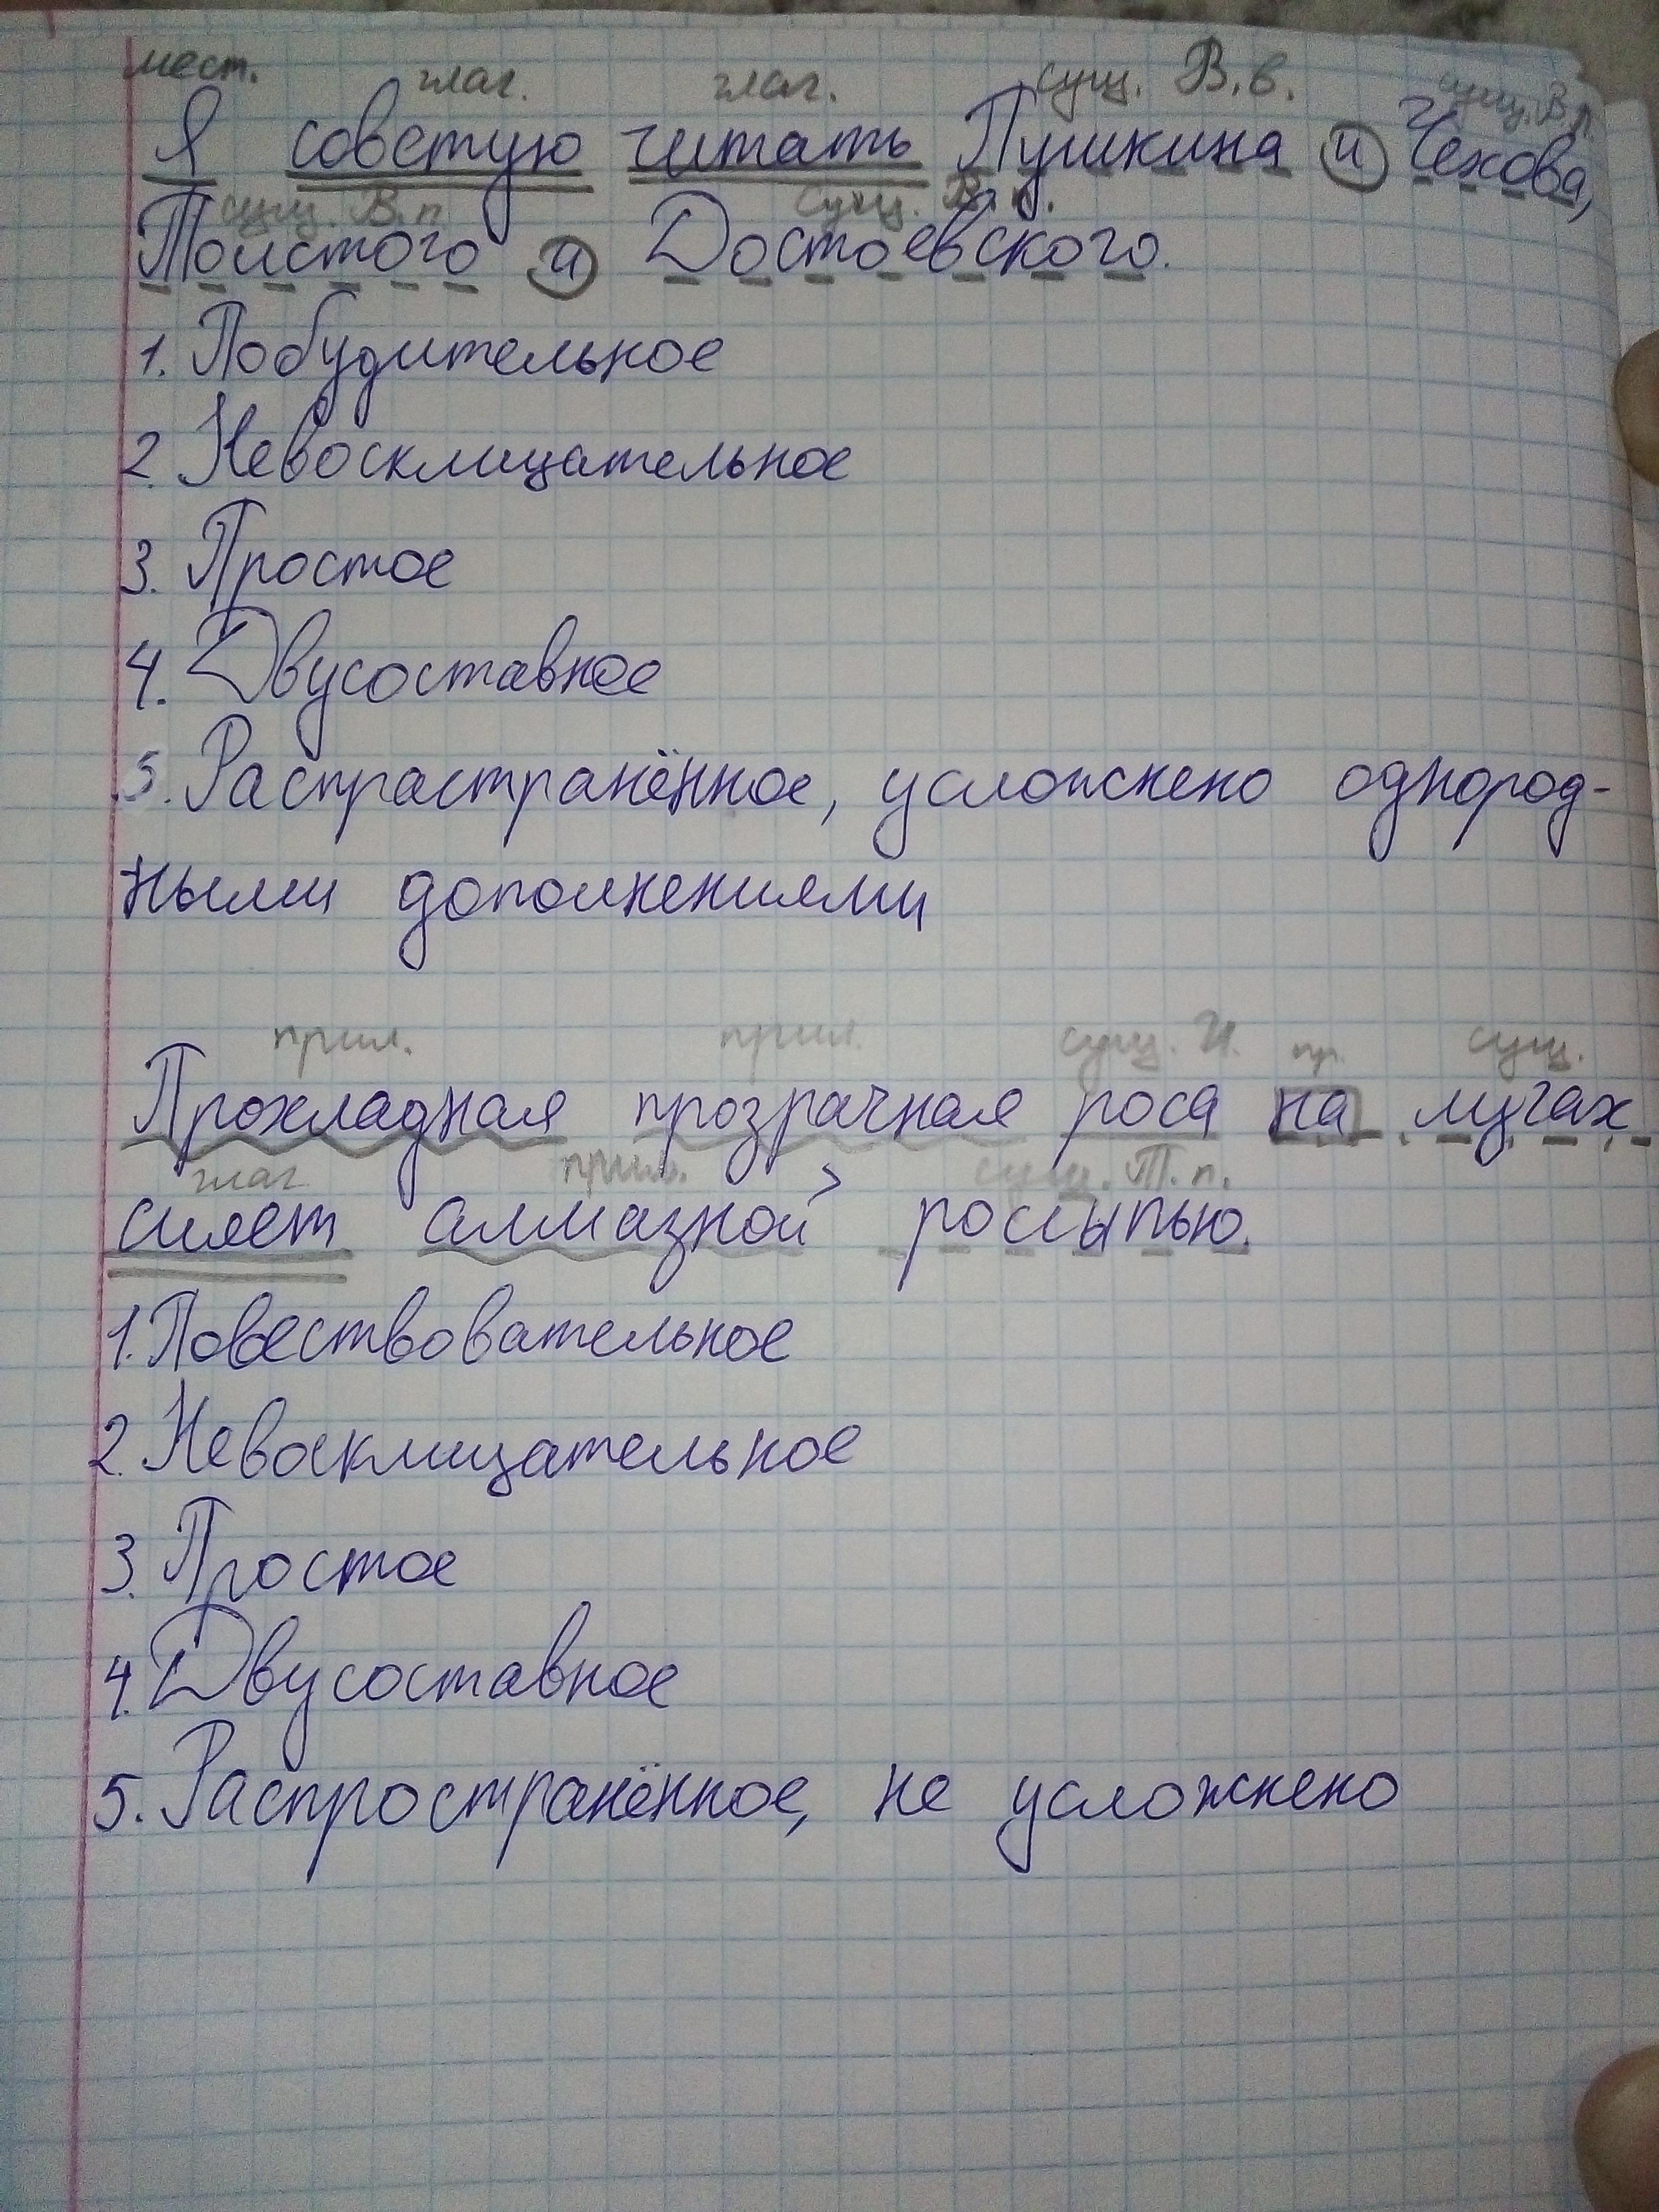 мест. глаг. глаг. сущ. В.в. сущ. В.п.
Я советую читать Пушкина и Чехова,
сущ. В.п сущ. В.п.
Толстого и Достоевского.
1. Побудительное
2. Невосклицательное
3. Простое
4. Двусоставное
5. Распрастранённое, усложнено однород-
ными дополнениями
прил. прил. сущ. И. пр. сущ.
Прохладная прозрачная роса на лугах
глаг прил. сущ. Т.п.
сияет алмазной россыпью.
1. Повествовательное
2. Невосклицательное
3. Простое
4. Двусоставное
5. Распространённое, не усложнено